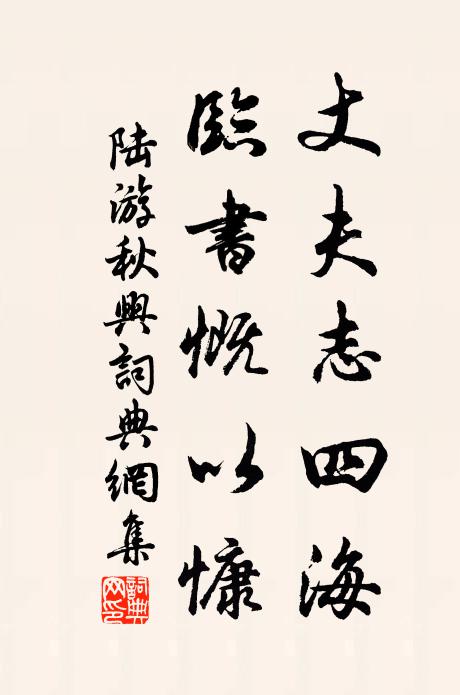 丈夫志四海
臨書慨以慷
陸游秋興詞典網集
詞典網印